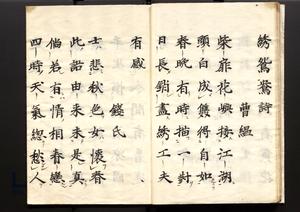 綉鴛鴦詩
曹
柴扉花嶼接江湖
頭白成雙得自如
春晚有時描一對
日長銷盡綉工夫
有感
錢氏
士悲秋色女懷春
此語由來未是真
倘若有情相眷戀
四時天氣總愁人